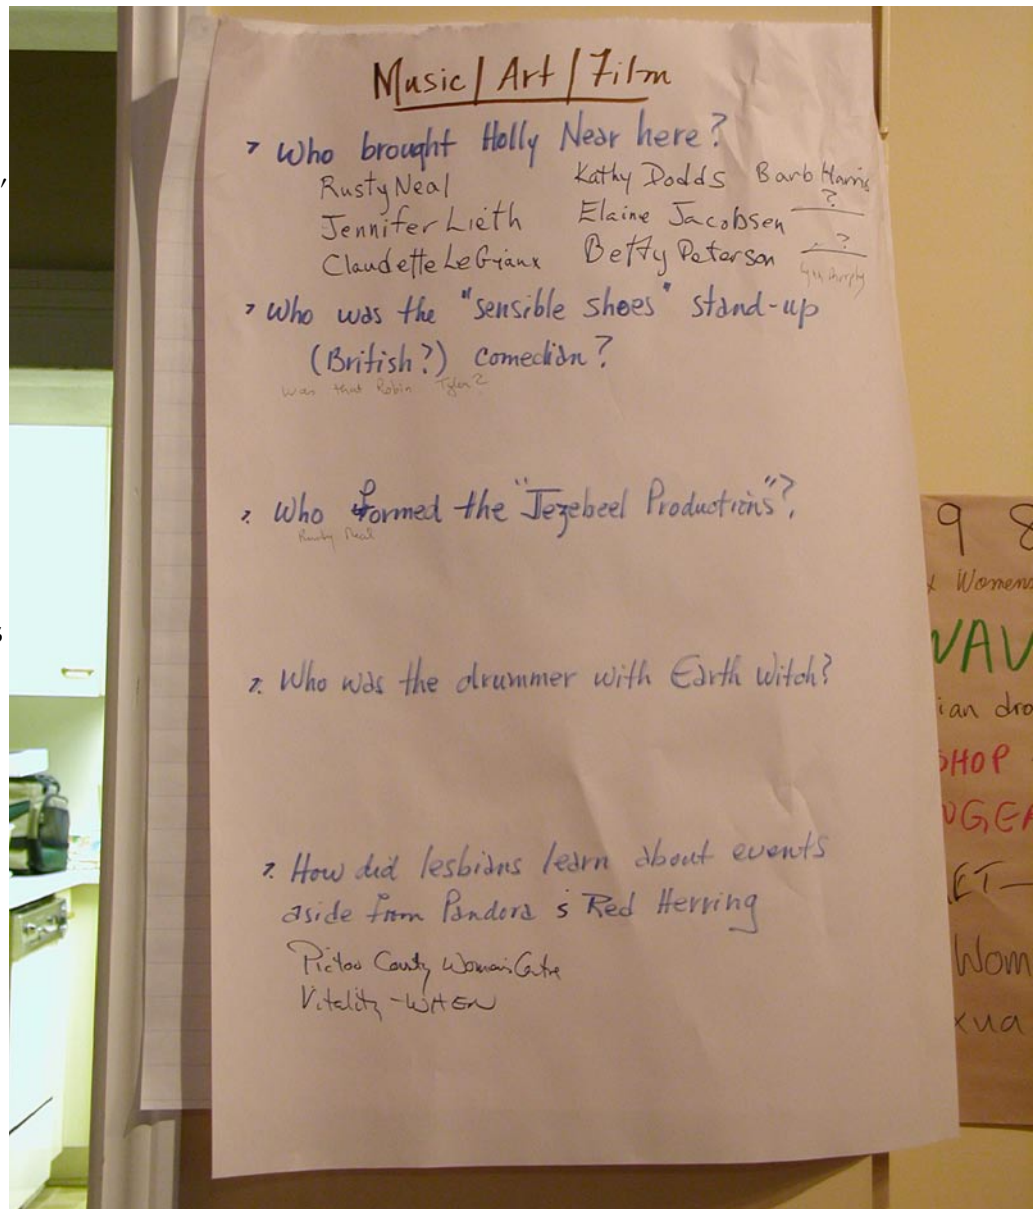 Music / Art / Film
? Who brought Holly Near here?
Rusty Neal Kathy Dodds Barb Harris
Jennifer Lieth Elaine Jacobsen ?
Claudette LeGianx Betty Peterson ?
Murphy
? Who was the "sensible shoes" stand-up
(British?) comedian?
was that Robin Tyler?
? Who formed the "Jezebeel Productions"?
Neal
? Who was the drummer with Earth Witch?
? How did lesbians learn about events
aside from Pandora & Red Herring
Pictou County Women's Centre
Vitality - WHEN
9 8
Womens
WAV
ian dro
SHOP
NGEA
ET-
Wom
xua